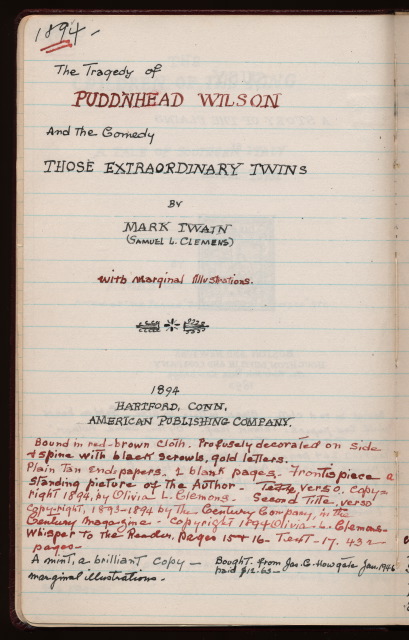 1894 -
The Tragedy of
PUDD'NHEAD WILSON
And the Comedy
THOSE EXTRAORDINARY TWINS
BY
MARK TWAIN
(SAMUEL L. CLEMENS)
With Marginal Illustrations.
1894
HARTFORD, CONN.
AMERICAN PUBLISHING COMPANY.
Bound in red-brown cloth. Profusely decorated on side
& spine with black scrowls, gold letters.
Plain Tan endpapers. 2 blank pages. Frontispiece a
standing picture of the Author - Title, verso. Copy=
right 1894, by Olivia L. Clemens. Second Title, verso
Copyright, 1893-1894 by the Century Company, in the
Century Magazine - Copyright 1894 Olivia L. Clemens -
Whisper to the Reader. Pages 15 & 16 - Text - 17. 432
pages -
A mint, a brilliant copy - Bought from Jas. G. Howgate Jan. 1946
marginal illustrations. paid $12.63 -